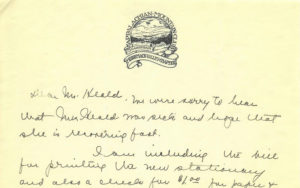 APPALACHIAN MOUNTAIN CLUB
Dear Mr. Heald, We were sorry to hear
that Mrs. Heald was sick and hope that
she is recovering fast.
I am including the bill
for printing the new stationary
and also a check for $1.00 for paper &